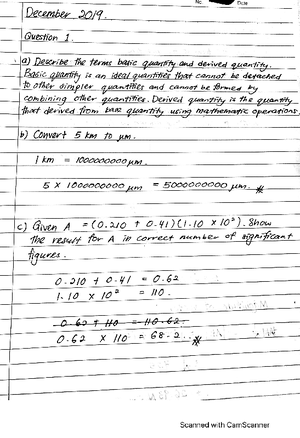 No.
Date
December 2019.
Question 1.
a) Describe the terms basic quantity and derived quantity.
Basic quantity is an ideal quantities that cannot be detached
to other simpler quantities and cannot be formed by
combining other quantities. Derived quantity is the quantity
that derived from base quantity using mathematic operations.
b) Convert 5 km to μm.
1 km = 1000000000 μm.
5 × 1000000000 μm = 5000000000 μm.
c) Given A = (0.210 + 0.41)(1.10 × 10²). Show
the result for A in correct number of significant
figures.
0.210 + 0.41 = 0.62
1.10 × 10² = 110.
0.62 + 110 = 110.62.
0.62 × 110 = 68.2..
Scanned with CamScanner